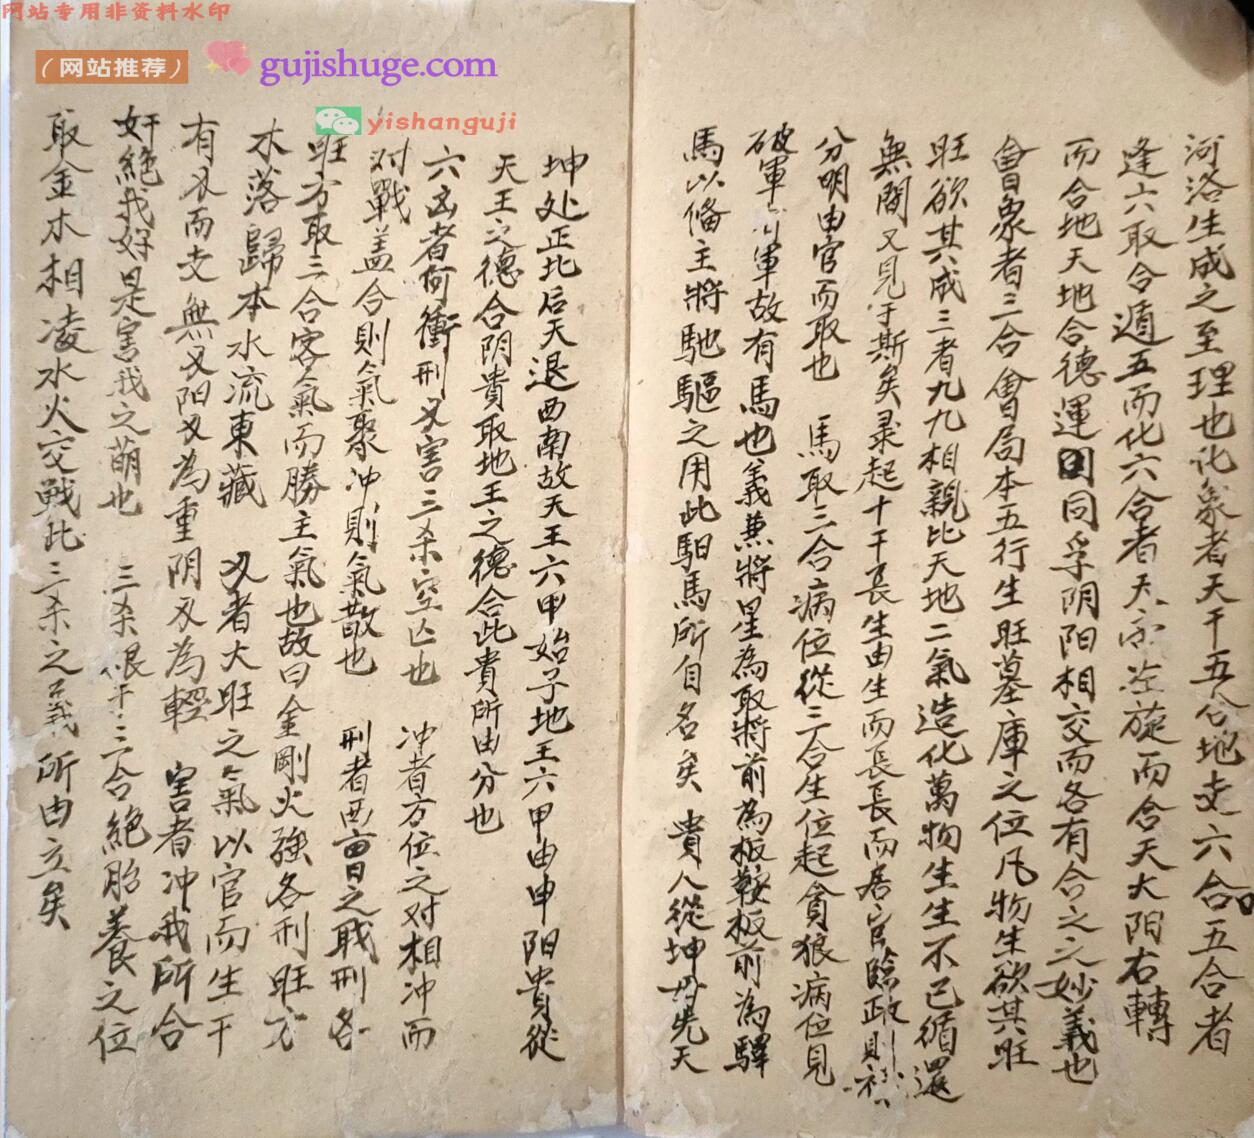 网站专用非资料水印
（网站推荐）
gujishuge.com
yishanguji
河洛生成之至理也化象者天干五合地支六合五合者
逢六取合遁五而化六合者天左旋而合天大阳右轉
而合地天地合德運同孚阴阳相交而各有合之之妙義也
會象者三合會局本五行生旺墓庫之位凡物生欲其旺
旺欲其成三者九九相親比天地二氣造化萬物生生不已循還
無間又見于斯矣录起十干長生由生而長長而居官臨政則祿
分明由官而取也 馬取三合病位從三合生位起貪狼病位見
破軍軍故有馬也義兼將星為取將前為板鞍板前為驛
馬以俻主將馳驅之用此馹馬所自名矣 貴人從坤母先天
坤处正北后天退西南故天王六甲始子地王六甲由申阳貴從
天王之德合阴貴取地王之德合此貴所由分也
六凶者何衝刑刃害三杀空亡也 冲者方位之对相冲而
对戰盖合則氣聚冲則氣散也 刑者西曺之戰刑各
旺方取三合客氣而勝主氣也故曰金剛火強各刑旺方
木落歸本水流東藏 刃者大旺之氣以官而生干
有刃而支無刃阳刃為重阴刃為輕 害者冲我所合
奸絕我好是害我之萌也 三杀根于三合絕胎養之位
取金木相凌水火交戰此三杀之義所由立矣